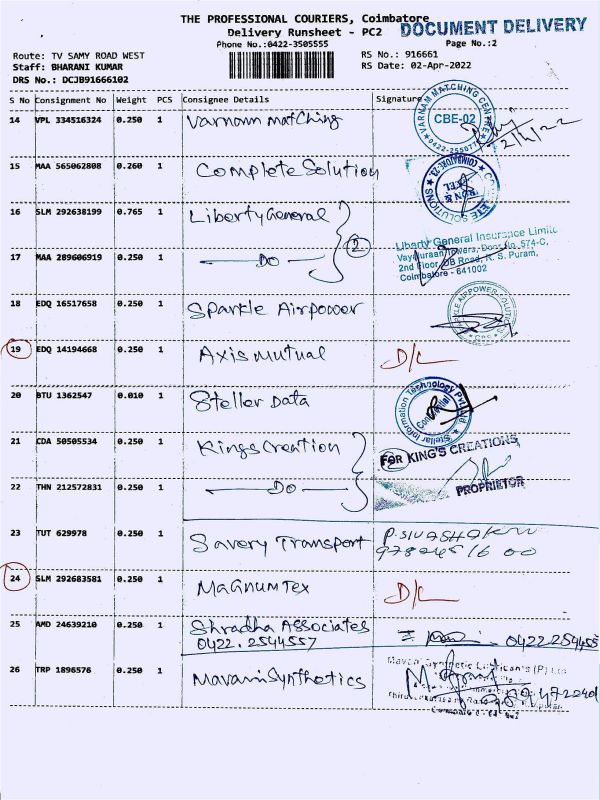 THE PROFESSIONAL COURIERS, Coimbatore
DOCUMENT DELIVERY
Delivery Runsheet - PC2
Phone No.:0422-3505555
Page No.:2
Route: TV SAMY ROAD WEST
RS No.: 916661
Staff: BHARANI KUMAR
RS Date: 02-Apr-2022
DRS No.: DCJB91666102
S No Consignment No Weight PCS Consignee Details Signature
14 VPL 334516324 0.250 1 Varnam matching
VARNAM MATCHING CENTRE CBE-02
2/4/22
15 MAA 565062808 0.260 1 Complete Solution
16 SLM 292638199 0.765 1 Liberty General
2
17 MAA 289606919 0.250 1 DO
Liberty General Insurance Limite
2nd Floor, DB Road, R. S. Puram,
Coimbatore - 641002
18 EDQ 16517658 0.250 1 Sparkle Airpower
19 EDQ 14194668 0.250 1 Axis mutual D/L
20 BTU 1362547 0.010 1 Steller Data
Stellar Information Technology Pvt Ltd
21 CDA 50505534 0.250 1 Kings Creation
FOR KING'S CREATIONS
22 THN 212572831 0.250 1 DO
PROPRIETOR
23 TUT 629978 0.250 1 Savery Transport
24 SLM 292683581 0.250 1 Magnum Tex D/L
25 AMD 24639210 0.250 1 Shradha Associates
0422.2544557
0422.254455
26 TRP 1896576 0.250 1 Mavani Synthetics